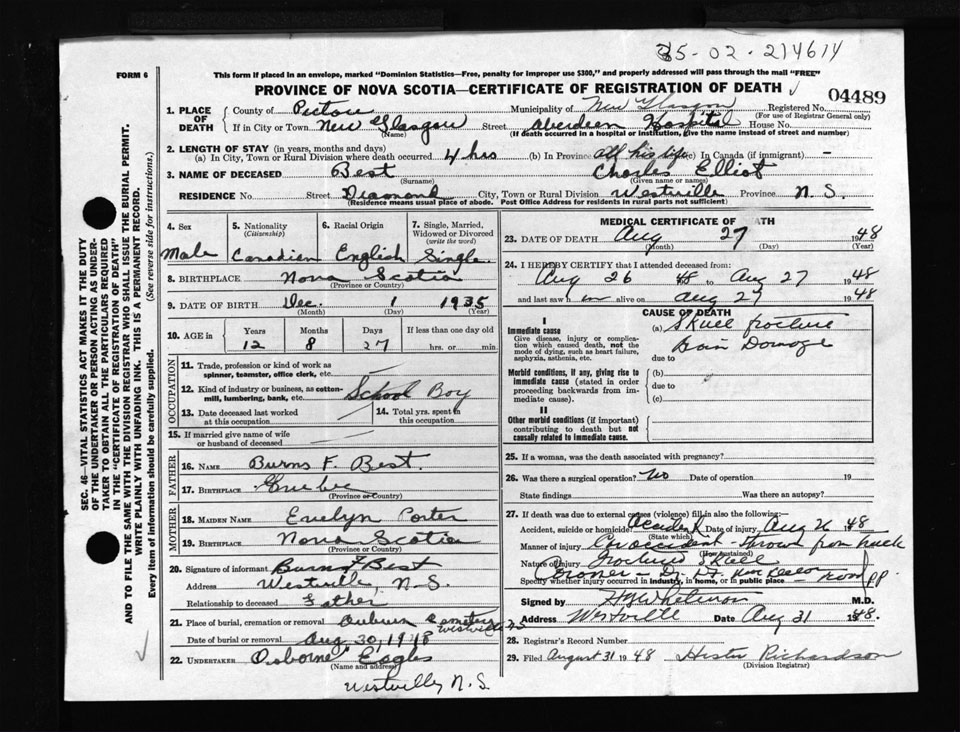 35-02-214614
FORM 6
This form if placed in an envelope, marked "Dominion Statistics—Free, penalty for improper use $300," and properly addressed will pass through the mail "FREE"
PROVINCE OF NOVA SCOTIA—CERTIFICATE OF REGISTRATION OF DEATH
04489
1. PLACE OF DEATH County of Pictou Municipality of New Glasgow Registered No.
(For use of Registrar General only)
If in City or Town New Glasgow Street Aberdeen Hospital House No.
(Name) (If death occurred in a hospital or institution, give the name instead of street and number)
2. LENGTH OF STAY (in years, months and days)
(a) In City, Town or Rural Division where death occurred 4 hrs (b) In Province all his life (c) In Canada (if immigrant) —
3. NAME OF DECEASED Best Charles Elliot
(Surname) (Given name or names)
RESIDENCE No. Street Diamond City, Town or Rural Division Westville Province N.S.
(Residence means usual place of abode. Post Office Address for residents in rural parts not sufficient)
SEC. 46—VITAL STATISTICS ACT MAKES IT THE DUTY
OF THE UNDERTAKER OR PERSON ACTING AS UNDER-
TAKER TO OBTAIN ALL THE PARTICULARS REQUIRED
IN THE "CERTIFICATE OF REGISTRATION OF DEATH"
AND TO FILE THE SAME WITH THE DIVISION REGISTRAR WHO SHALL ISSUE THE BURIAL PERMIT.
WRITE PLAINLY WITH UNFADING INK. THIS IS A PERMANENT RECORD.
Every item of information should be carefully supplied. (See reverse side for instructions.)
4. Sex 5. Nationality (Citizenship) 6. Racial Origin 7. Single, Married, Widowed or Divorced (write the word)
Male Canadian English Single
8. BIRTHPLACE Nova Scotia
(Province or Country)
9. DATE OF BIRTH Dec. 1 1935
(Month) (Day) (Year)
10. AGE in Years Months Days If less than one day old
12 8 27 hrs. or min.
OCCUPATION
11. Trade, profession or kind of work as spinner, teamster, office clerk, etc. —
12. Kind of industry or business, as cotton-mill, lumbering, bank, etc. School Boy
13. Date deceased last worked at this occupation 14. Total yrs. spent in this occupation
15. If married give name of wife or husband of deceased —
FATHER
16. NAME Burns F. Best.
17. BIRTHPLACE Quebec
(Province or Country)
MOTHER
18. MAIDEN NAME Evelyn Porter
19. BIRTHPLACE Nova Scotia
(Province or Country)
20. Signature of informant Burns F Best
Address Westville, N.S.
Relationship to deceased Father
21. Place of burial, cremation or removal Auburn Cemetery Westville NS
Date of burial or removal Aug 30, 1948
22. UNDERTAKER Osborne Eagles
(Name and address)
Westville, N.S.
MEDICAL CERTIFICATE OF ATH
23. DATE OF DEATH Aug 27 1948
(Month) (Day) (Year)
24. I HEREBY CERTIFY that I attended deceased from:
Aug 26 48 to Aug 27 1948
and last saw h im alive on Aug 27 1948
CAUSE OF DEATH
I
Immediate cause (a) Skull fracture
Give disease, injury or complication which caused death, not the mode of dying, such as heart failure, asphyxia, asthenia, etc.
Brain Damage
due to
Morbid conditions, if any, giving rise to immediate cause (stated in order proceeding backwards from immediate cause).
(b)
due to
(c)
II
Other morbid conditions (if important) contributing to death but not causally related to immediate cause.
25. If a woman, was the death associated with pregnancy?
26. Was there a surgical operation? No Date of operation 19
State findings Was there an autopsy?
27. If death was due to external causes (violence) fill in also the following:—
Accident, suicide or homicide? Accident Date of injury Aug 26 1948
(State which)
Manner of injury accident - thrown from truck
(How sustained)
Nature of injury Fractured Skull
Coroner - Dr.
Specify whether injury occurred in industry, in home, or in public place —
Signed by M.D.
Address Westville Date Aug 31 1948.
28. Registrar's Record Number
29. Filed August 31 1948 Hester Richardson
(Division Registrar)